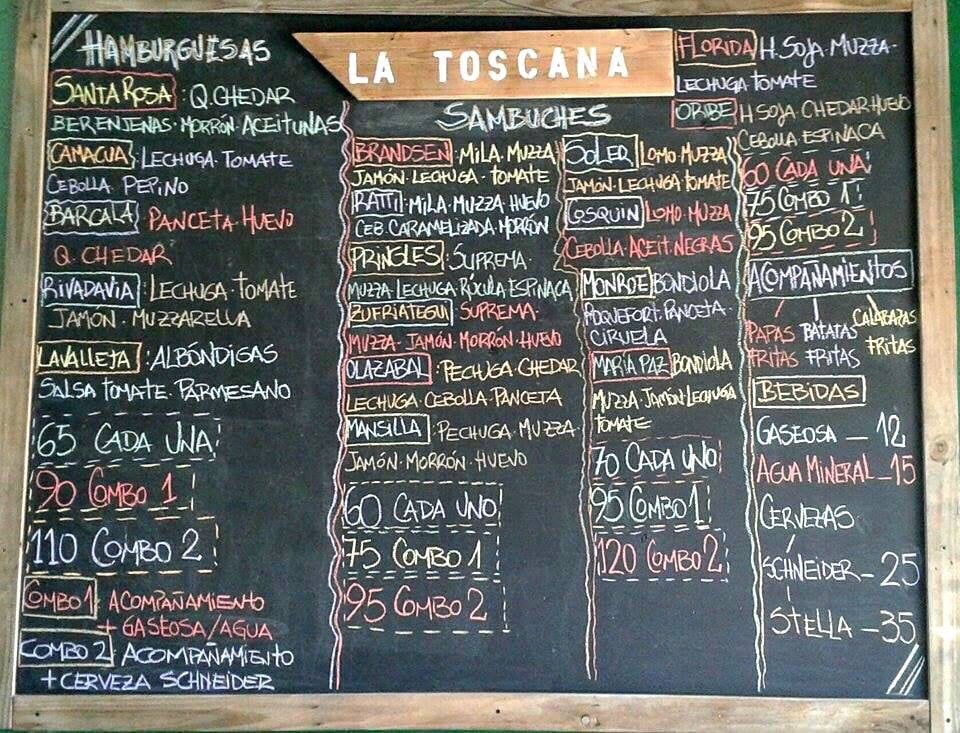 HAMBURGUESAS
SANTA ROSA: Q. CHEDAR
BERENJENAS · MORRÓN · ACEITUNAS
CAMACUA: LECHUGA · TOMATE
CEBOLLA PEPINO
BARCALA: PANCETA · HUEVO
Q. CHEDAR
RIVADAVIA: LECHUGA · TOMATE
JAMÓN · MUZZARELLA
LAVALLEJA: ALBÓNDIGAS
SALSA TOMATE · PARMESANO
65 CADA UNA
90 COMBO 1
110 COMBO 2
COMBO 1: ACOMPAÑAMIENTO
+ GASEOSA/AGUA
COMBO 2: ACOMPAÑAMIENTO
+ CERVEZA SCHNEIDER
LA TOSCANA
SAMBUCHES
BRANDSEN: MILA · MUZZA
JAMÓN · LECHUGA · TOMATE
RATTI: MILA · MUZZA HUEVO
CEB. CARAMELIZADA · MORRÓN
PRINGLES: SUPREMA
MUZZA · LECHUGA · RÚCULA ESPINACA
ZUFRIATEGUI: SUPREMA ·
MUZZA · JAMÓN · MORRÓN · HUEVO
OLAZABAL: PECHUGA · CHEDAR
LECHUGA · CEBOLLA · PANCETA
MANSILLA: PECHUGA · MUZZA ·
JAMÓN · MORRÓN · HUEVO
60 CADA UNO
75 COMBO 1
95 COMBO 2
SOLER: LOMO · MUZZA
JAMÓN · LECHUGA TOMATE
COSQUIN: LOMO · MUZZA
CEBOLLA · ACEIT. NEGRAS
MONROE: BONDIOLA
ROQUEFORT · PANCETA ·
CIRUELA
MARÍA PAZ: BONDIOLA
MUZZA · JAMÓN · LECHUGA
TOMATE
70 CADA UNO
95 COMBO 1
120 COMBO 2
FLORIDA: H. SOJA · MUZZA ·
LECHUGA TOMATE
ORIBE: H SOJA · CHEDAR · HUEVO
CEBOLLA ESPINACA
60 CADA UNA
75 COMBO 1
95 COMBO 2
ACOMPAÑAMIENTOS
PAPAS FRITAS
BATATAS FRITAS
CALABAZAS FRITAS
BEBIDAS
GASEOSA — 12
AGUA MINERAL — 15
CERVEZAS
SCHNEIDER — 25
STELLA — 35